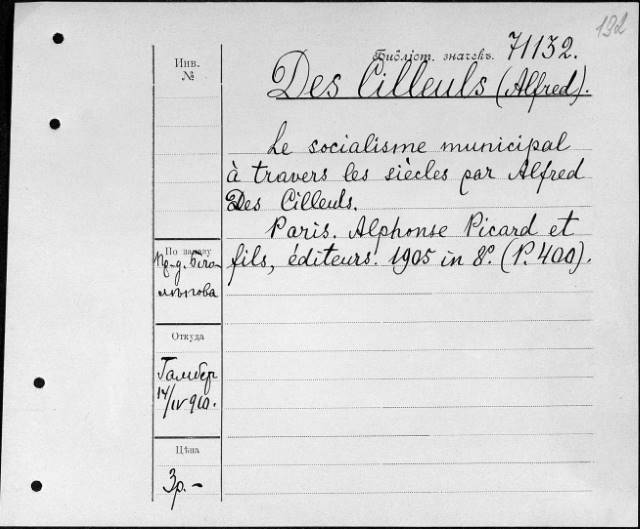 192
Библіот. значекъ. 71132.
Инв.
№
Des Cilleuls (Alfred).
Le socialisme municipal
à travers les siècles par Alfred
Des Cilleuls.
Paris. Alphonse Picard et
fils, éditeurs. 1905 in 8°. (P. 400).
По заказу
Откуда
Гамбер
14/IV 910.
Цѣна
3р. –